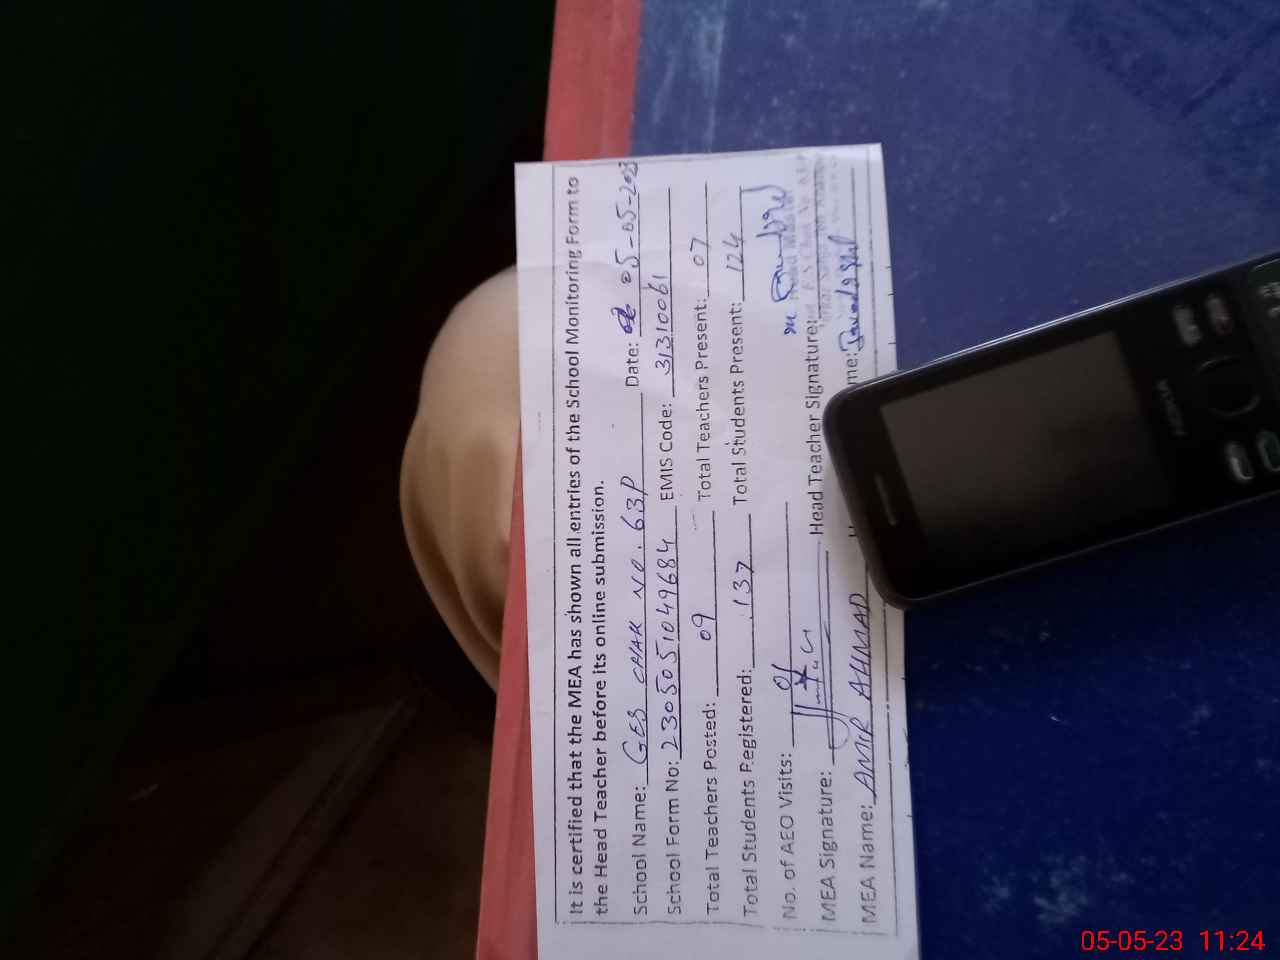 It is certified that the MEA has shown all entries of the School Monitoring Form to
the Head Teacher before its online submission.
School Name: GES CHAK NO. 63P Date: 05-05-2023
School Form No: 2305051049684 EMIS Code: 31310061
Total Teachers Posted: 09 Total Teachers Present: 07
Total Students Registered: 137 Total Students Present: 124
No. of AEO Visits: 01
MEA Signature: Head Teacher Signature:
MEA Name: AMIR AHMAD me:
NOKIA
05-05-23 11:24